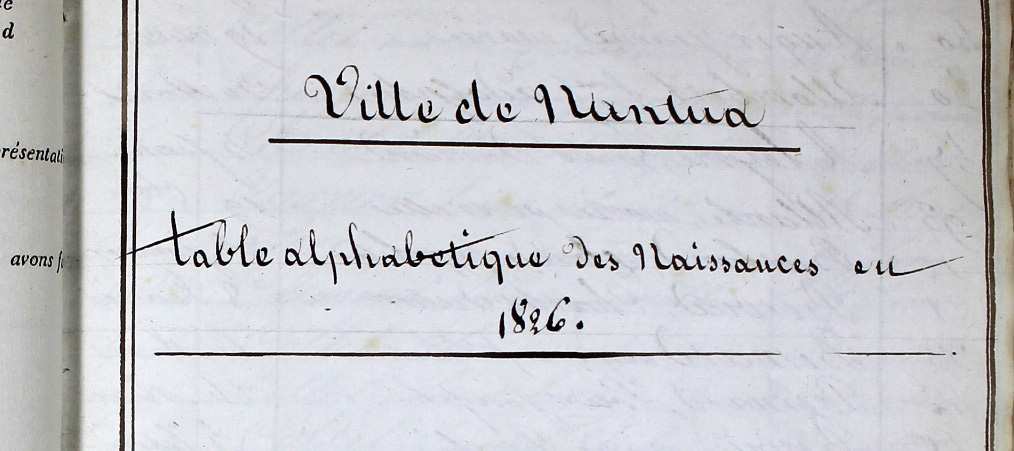 d
résentati
avons
Ville de Nantua
table alphabetique des Naissances en
1826.